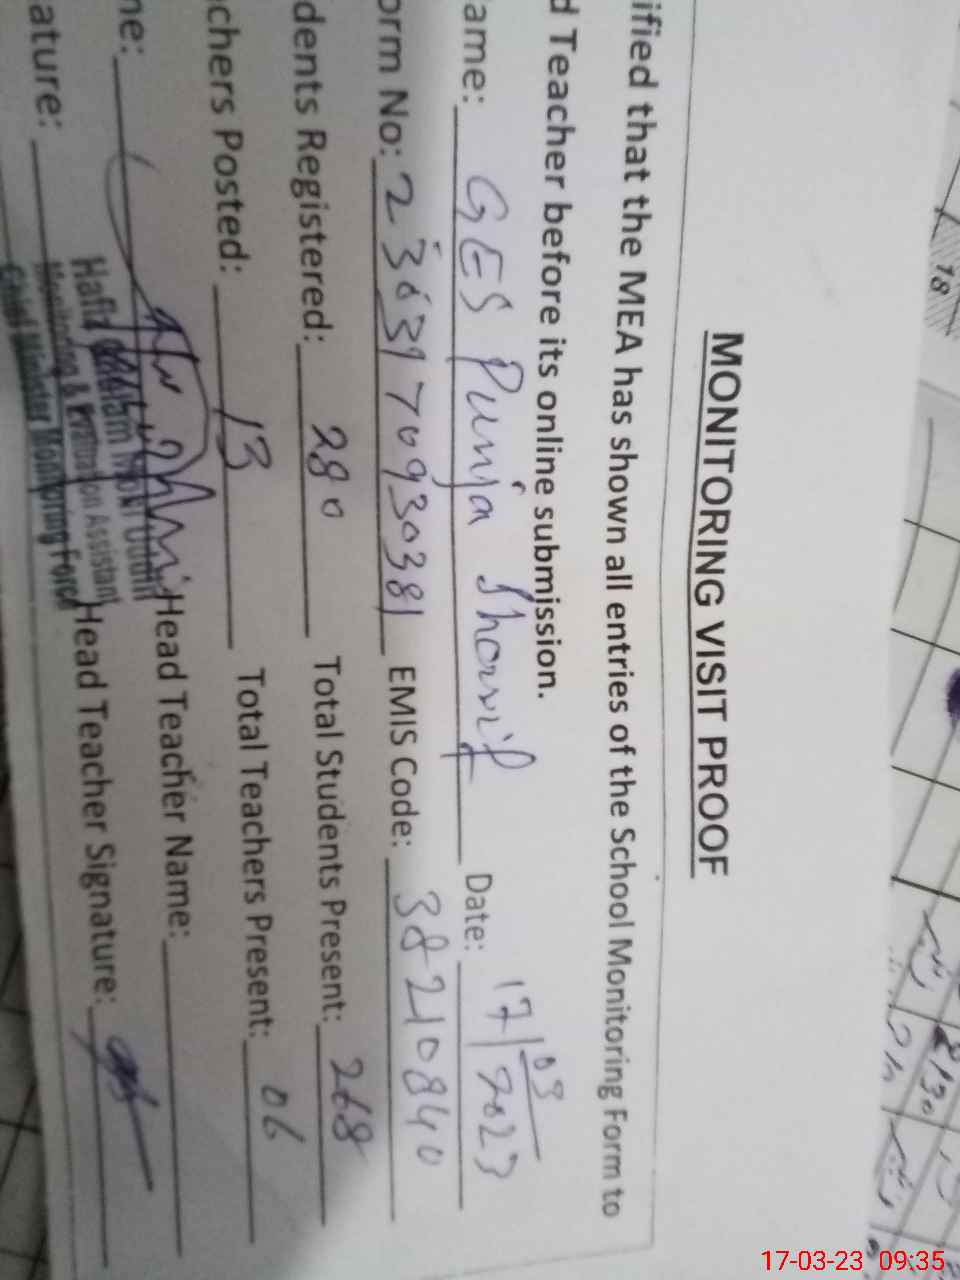 MONITORING VISIT PROOF
ified that the MEA has shown all entries of the School Monitoring Form to
d Teacher before its online submission.
ame: GES Punja Sharif Date: 17/03/2023
orm No: 2363170930381 EMIS Code: 38210840
dents Registered: 280 Total Students Present: 268
chers Posted: 13 Total Teachers Present: 06
ne: Head Teacher Name:
ature: Head Teacher Signature:
Hafiz
Monitoring & Evaluation Assistant
Chief Minister Monitoring Force
18
2130
17-03-23 09:35